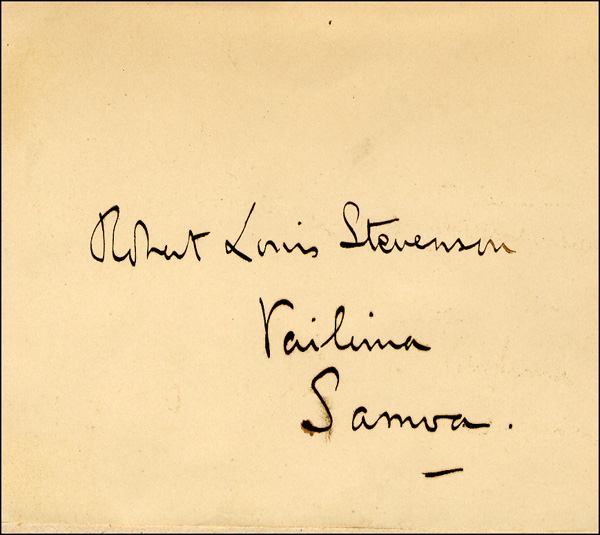 Robert Louis Stevenson
Vailima
Samoa.